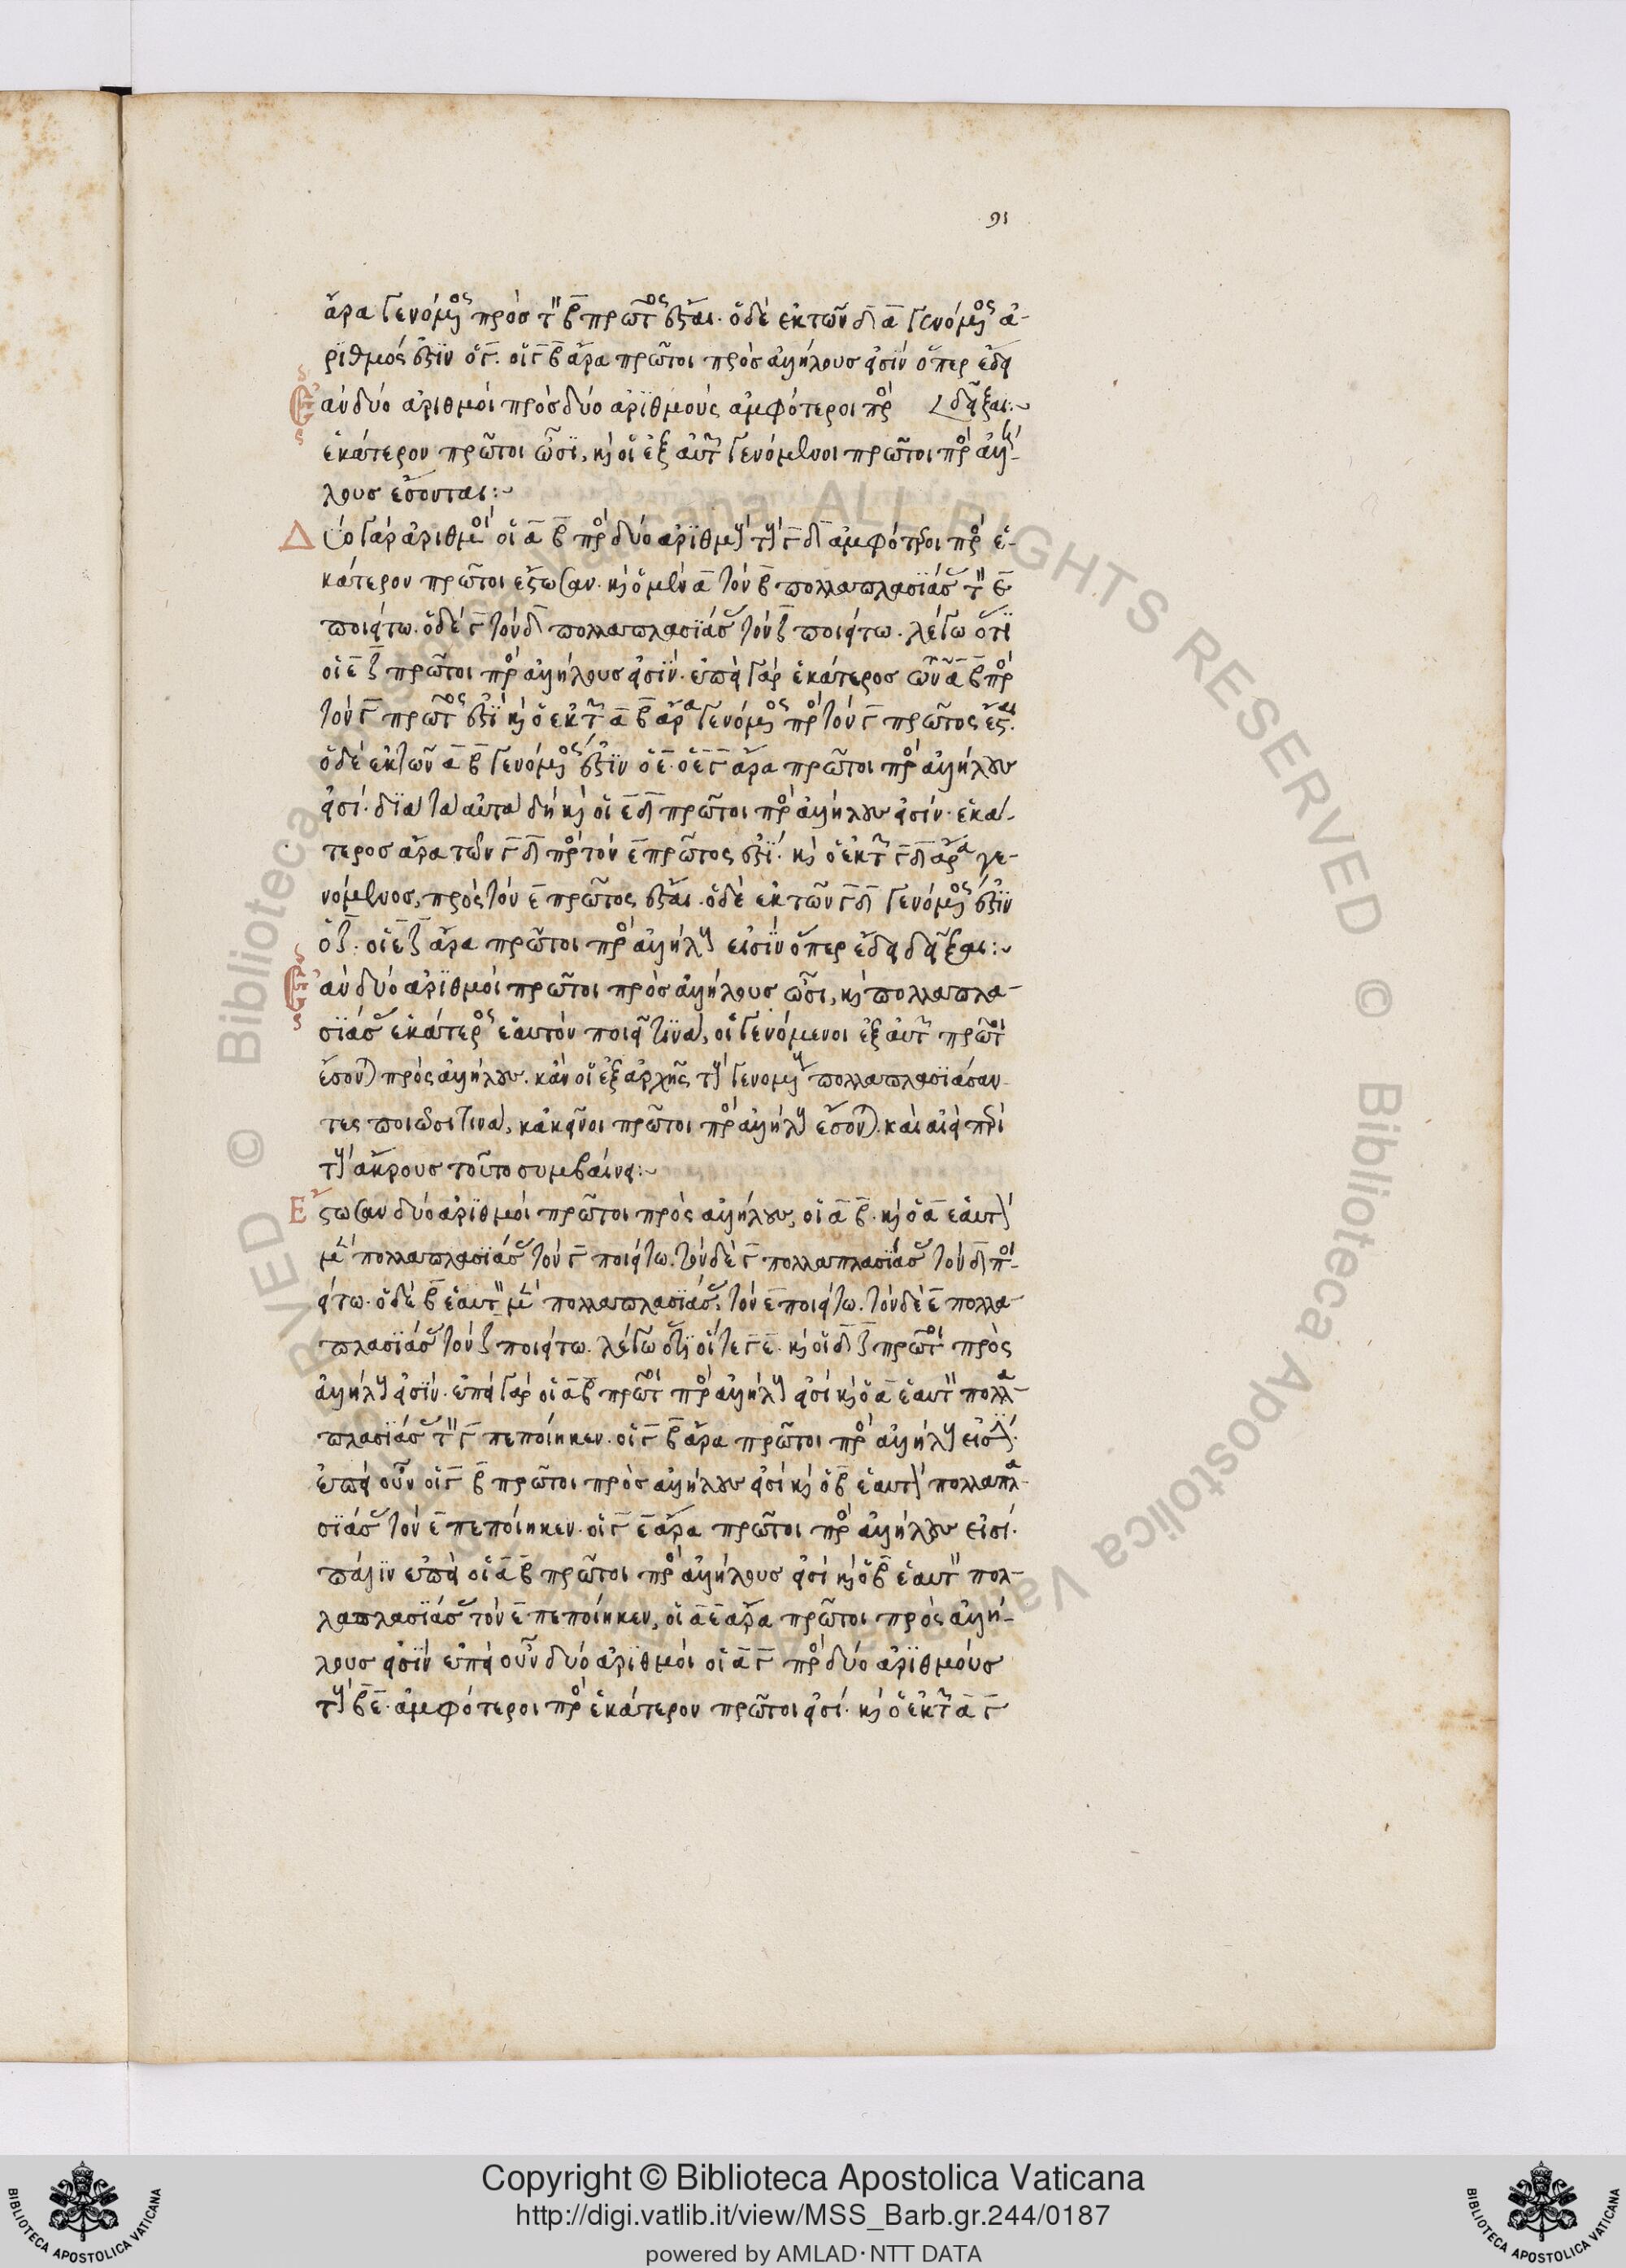 91
ἄρα γενόμενος πρὸς τὸν β πρῶτος ἔσται. ὁ δὲ ἐκ τῶν δ α γενόμενος ἀ-
ριθμός ἐστιν ὁ γ. οἱ γ β ἄρα πρῶτοι πρὸς ἀλλήλους εἰσίν ὅπερ ἔδει
Ἐὰν δύο ἀριθμοὶ πρὸς δύο ἀριθμοὺς ἀμφότεροι πρὸς δεῖξαι:~
ἑκάτερον πρῶτοι ὦσι, καὶ οἱ ἐξ αὐτῶν γενόμενοι πρῶτοι πρὸς ἀλλή-
λους ἔσονται:~
Δύο γὰρ ἀριθμοὶ οἱ α β πρὸς δύο ἀριθμοὺς τοὺς γ δ ἀμφότεροι πρὸς ἑ-
κάτερον πρῶτοι ἔστωσαν. καὶ ὁ μὲν α τὸν β πολλαπλασιάσας τὸν ε
ποιείτω. ὁ δὲ γ τὸν δ πολλαπλασιάσας τὸν ζ ποιείτω. λέγω ὅτι
οἱ ε ζ πρῶτοι πρὸς ἀλλήλους εἰσίν. ἐπεὶ γὰρ ἑκάτερος τῶν α β πρὸς
τὸν γ πρῶτός ἐστι καὶ ὁ ἐκ τῶν α β ἄρα γενόμενος πρὸς τὸν γ πρῶτος ἔσται.
ὁ δὲ ἐκ τῶν α β γενόμενός ἐστιν ὁ ε. οἱ ε γ ἄρα πρῶτοι πρὸς ἀλλήλους
εἰσί. διὰ τὰ αὐτὰ δὴ καὶ οἱ ε δ πρῶτοι πρὸς ἀλλήλους εἰσίν. ἑκά-
τερος ἄρα τῶν γ δ πρὸς τὸν ε πρῶτός ἐστι. καὶ ὁ ἐκ τῶν γ δ ἄρα γε-
νόμενος, πρὸς τὸν ε πρῶτος ἔσται. ὁ δὲ ἐκ τῶν γ δ γενόμενός ἐστιν
ὁ ζ. οἱ ε ζ ἄρα πρῶτοι πρὸς ἀλλήλους εἰσὶν ὅπερ ἔδει δεῖξαι:~
Ἐὰν δύο ἀριθμοὶ πρῶτοι πρὸς ἀλλήλους ὦσι, καὶ πολλαπλα-
σιάσας ἑκάτερος ἑαυτὸν ποιεῖ τινά, οἱ γενόμενοι ἐξ αὐτῶν πρῶτοι
ἔσονται πρὸς ἀλλήλους. κἂν οἱ ἐξ ἀρχῆς τοὺς γενομένους πολλαπλασιάσαν-
τες ποιῶσι τινά, κἀκεῖνοι πρῶτοι πρὸς ἀλλήλους ἔσονται. καὶ αἰεὶ περὶ
τοὺς ἄκρους τοῦτο συμβαίνει:~
Ἔστωσαν δύο ἀριθμοὶ πρῶτοι πρὸς ἀλλήλους, οἱ α β. καὶ ὁ α ἑαυτὸν
μὲν πολλαπλασιάσας τὸν γ ποιείτω. τὸν δὲ γ πολλαπλασιάσας τὸν δ ποι-
είτω. ὁ δὲ β ἑαυτὸν μὲν πολλαπλασιάσας, τὸν ε ποιείτω. τὸν δὲ ε πολλα-
πλασιάσας τὸν ζ ποιείτω. λέγω ὅτι οἵ τε γ ε. καὶ οἱ δ ζ πρῶτοι πρὸς
ἀλλήλους εἰσίν. ἐπεὶ γὰρ οἱ α β πρῶτοι πρὸς ἀλλήλους εἰσὶ καὶ ὁ α ἑαυτὸν πολλα-
πλασιάσας τὸν γ πεποίηκεν. οἱ γ β ἄρα πρῶτοι πρὸς ἀλλήλους εἰσίν.
ἐπεὶ οὖν οἱ γ β πρῶτοι πρὸς ἀλλήλους εἰσὶ καὶ ὁ β ἑαυτὸν πολλαπλα-
σιάσας τὸν ε πεποίηκεν. οἱ γ ε ἄρα πρῶτοι πρὸς ἀλλήλους εἰσί.
πάλιν ἐπεὶ οἱ α β πρῶτοι πρὸς ἀλλήλους εἰσὶ καὶ ὁ β ἑαυτὸν πολ-
λαπλασιάσας τὸν ε πεποίηκεν, οἱ α ε ἄρα πρῶτοι πρὸς ἀλλή-
λους εἰσίν ἐπεὶ οὖν δύο ἀριθμοὶ οἱ α γ πρὸς δύο ἀριθμοὺς
τοὺς β ε. ἀμφότεροι πρὸς ἑκάτερον πρῶτοι εἰσί. καὶ ὁ ἐκ τῶν α γ
Copyright © Biblioteca Apostolica Vaticana
http://digi.vatlib.it/view/MSS_Barb.gr.244/0187
powered by AMLAD·NTT DATA
BIBLIOTECA APOSTOLICA VATICANA
BIBLIOTECA APOSTOLICA VATICANA
© Biblioteca Apostolica Vaticana ALL RIGHTS RESERVED © Biblioteca Apostolica Vaticana ALL RIGHTS RESERVED